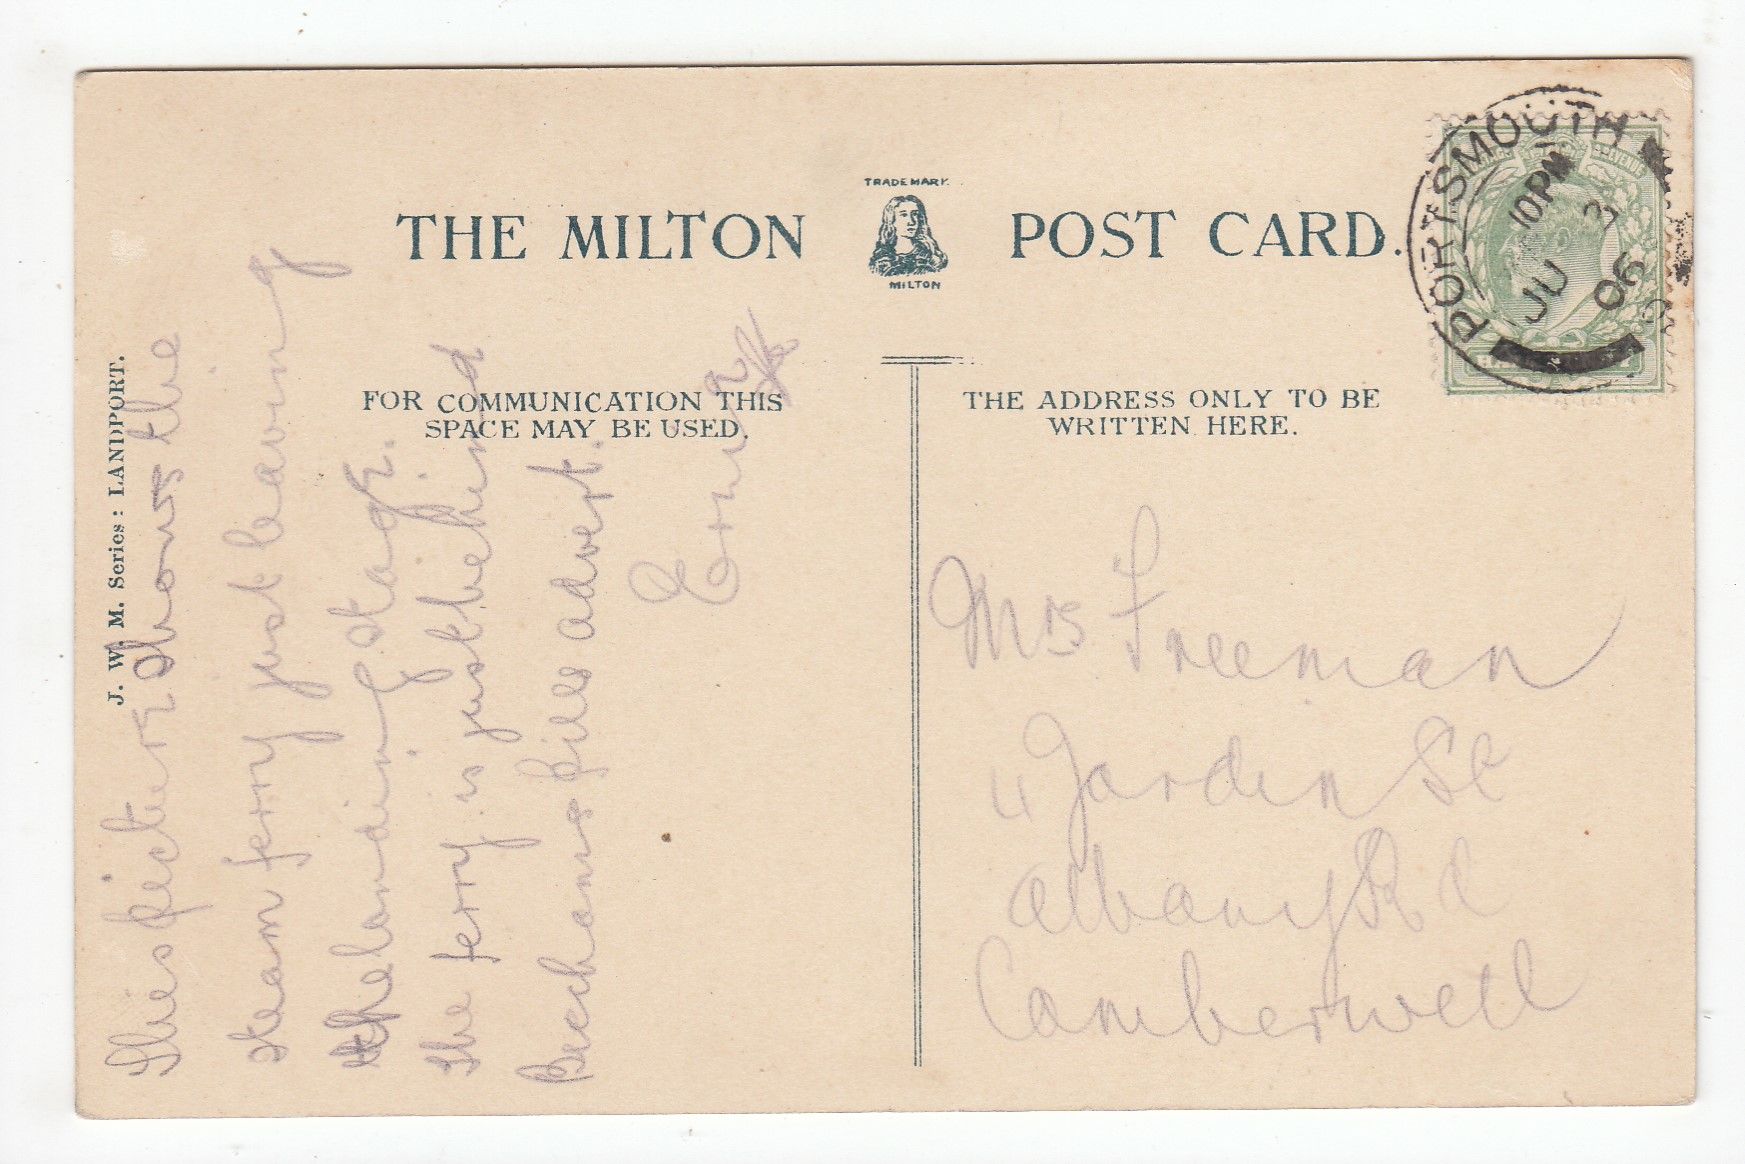 TRADE MARK.
THE MILTON POST CARD.
MILTON
FOR COMMUNICATION THIS
SPACE MAY BE USED.
THE ADDRESS ONLY TO BE
WRITTEN HERE.
J. W. M. Series : LANDPORT.
This picture shows the
steam ferry just leaving
the landing stage.
The ferry is just behind
Beechams pills advert.
Ernie
Mrs Freeman
4 Jardin St
Albany Rd
Camberwell
PORTSMOUTH
10 PM
JU
06